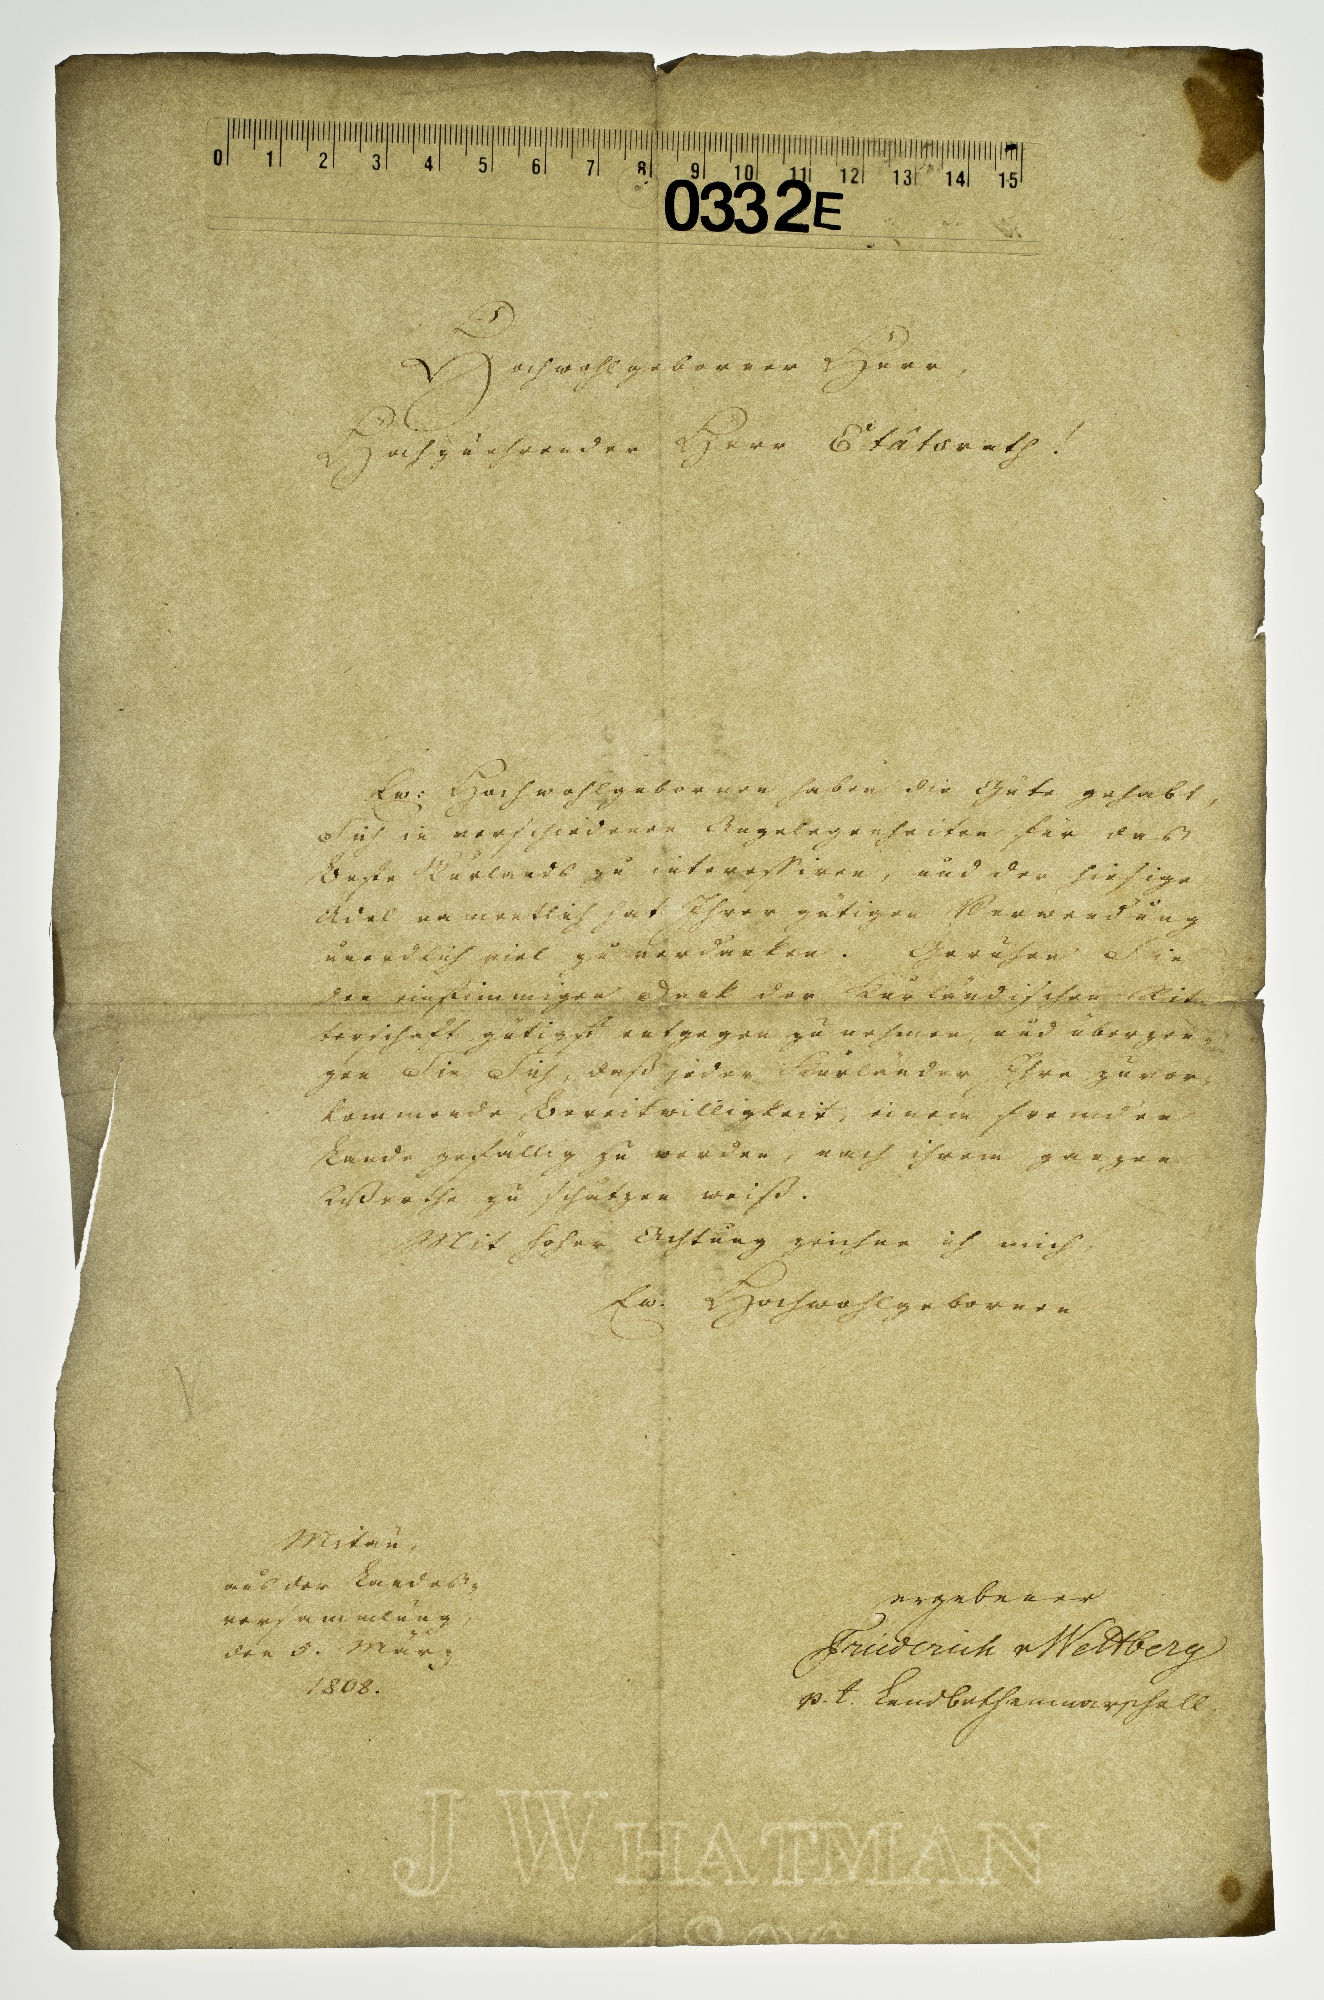 0 1 2 3 4 5 6 7 8 9 10 11 12 13 14 15
0332E
Hochwohlgeborner Herr,
Hochzuehrender Herr Etâtsrath!
Ew: Hochwohlgebornen haben die Güte gehabt,
Sich in verschiedenen Angelegenheiten für das
Beste Kurlands zu interessiren, und der hiesige
Adel namentlich hat Ihrer gütigen Verwendung
unendlich viel zu verdanken. Geruhen Sie
den einstimmigen Dank der Kurländischen Rit-
terschaft gütigst entgegen zu nehmen, und überzeu-
gen Sie Sich, daß jeder Kurländer Ihre zuvor-
kommende Bereitwilligkeit, einem fremden
Lande gefällig zu werden, nach ihrem ganzen
Werthe zu schätzen weiß.
Mit hoher Achtung zeichne ich mich,
Ew. Hochwohlgebornen
Mitau,
aus der Landes-
versammlung,
den 5. März
1808.
ergebener
Friederich v
p. t. Landbothenmarschall.
J WHATMAN
1806